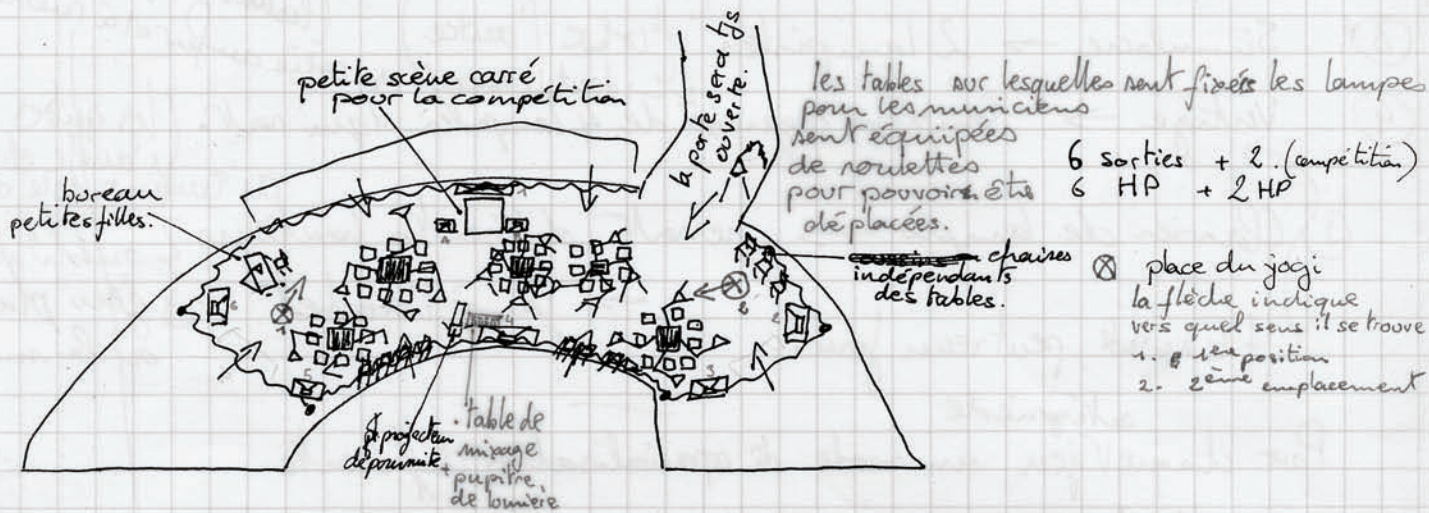 petite scène carré
pour la compétition
la porte sera tjs
ouverte.
les tables sur lesquelles sont fixées les lampes
pour les musiciens
sont équipées
de roulettes
pour pouvoir êts
déplacées.
6 sorties + 2. (compétition)
6 HP + 2 HP
bureau
petites filles.
chaises
indépendants
des tables.
⊗ place du jogi
la flèche indique
vers quel sens il se trouve
1. 1ère position
2. 2ème emplacement
1
2
2
3
4
5
6
projecteur
table de
mixage
+ pupitre
de lumière